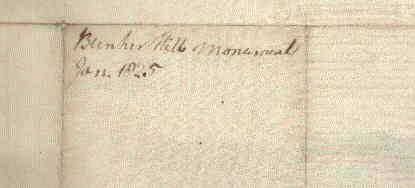 Bunker Hill Monument
Jan. 1825